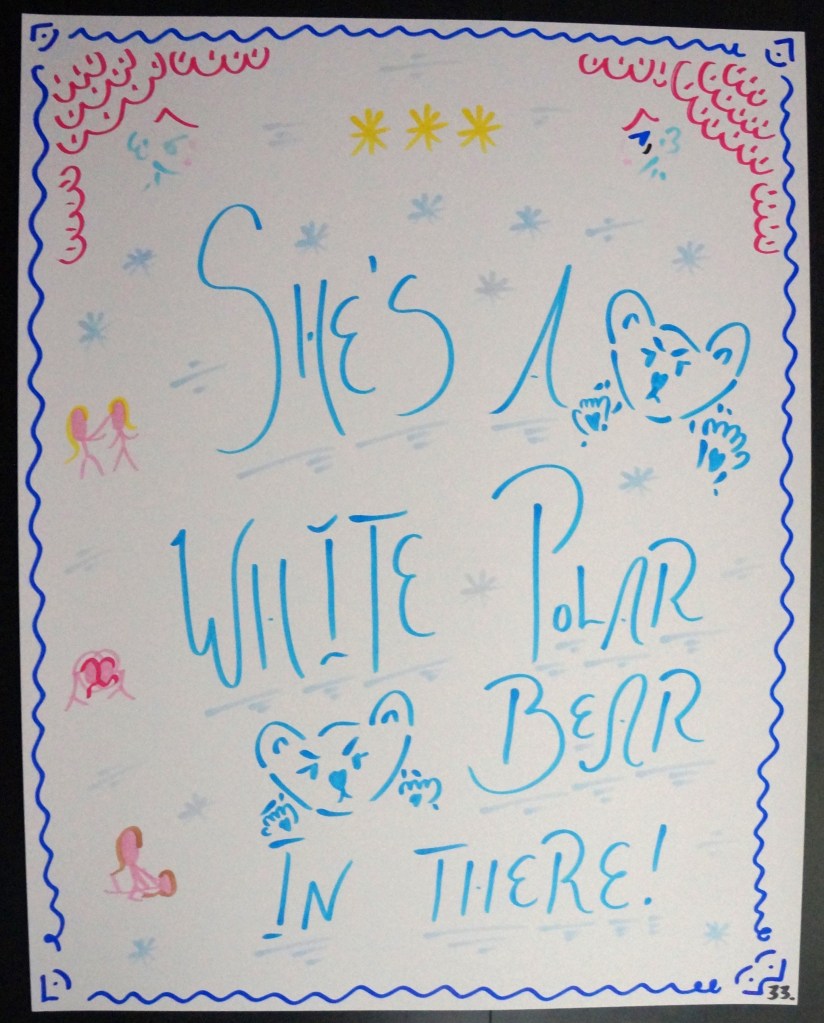 SHE'S A
WHITE POLAR
BEAR
IN THERE!
33.